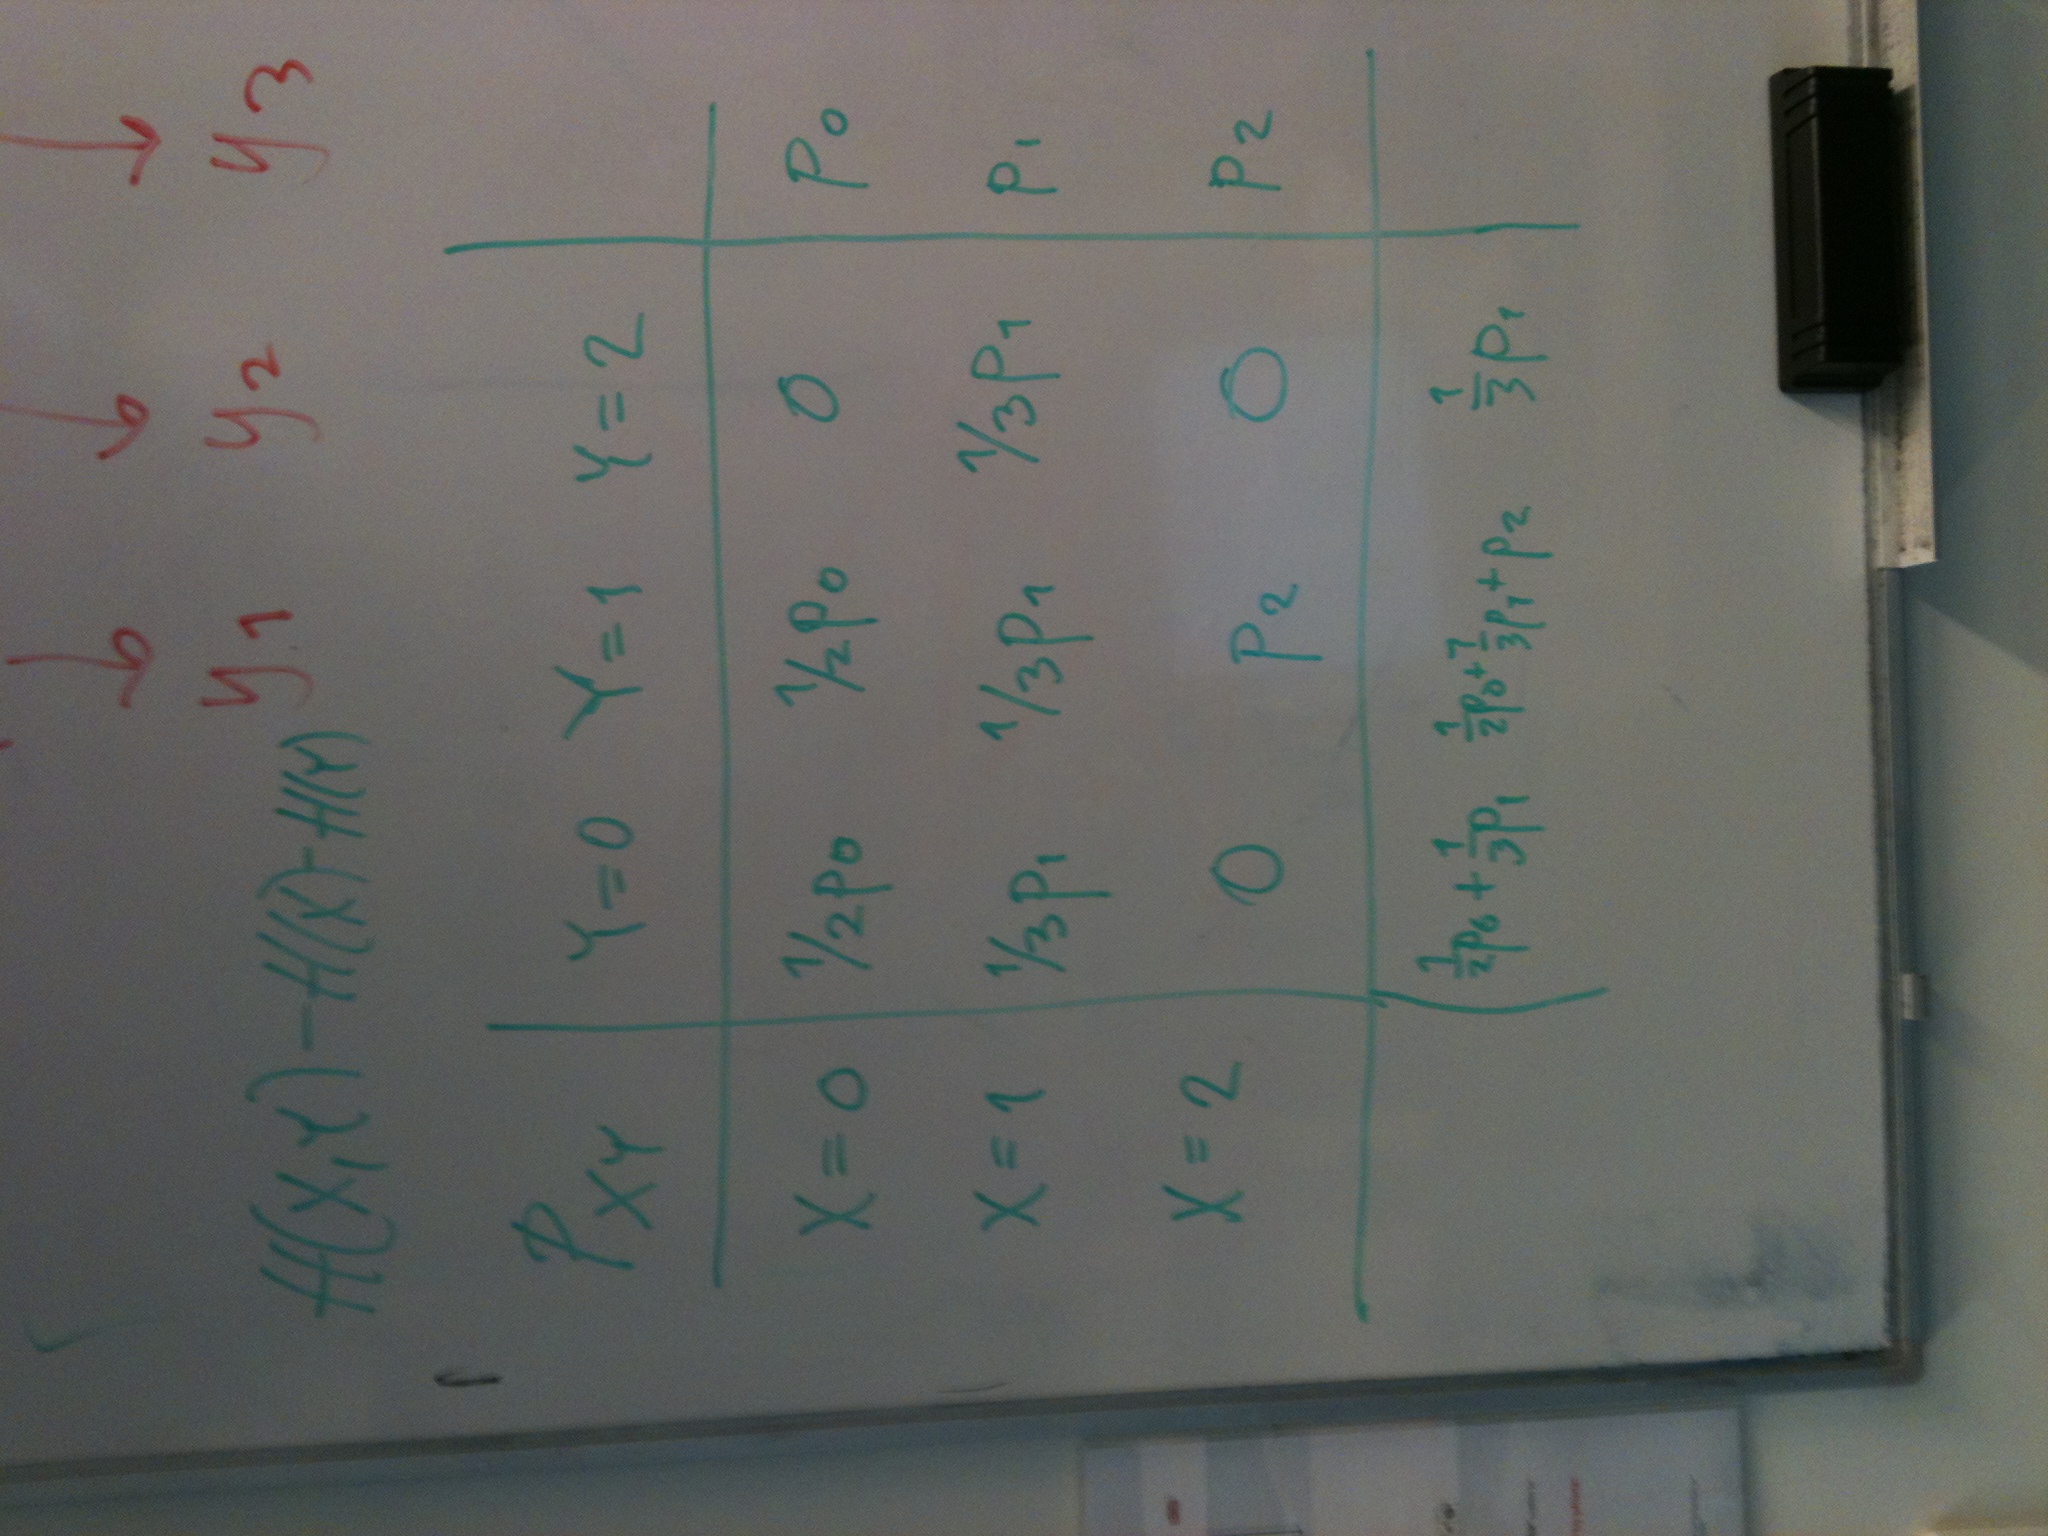 y1 y2 y3
H(X,Y) - H(X) - H(Y)
PXY Y=0 Y=1 Y=2
X=0 1/2p0 1/2p0 0 p0
X=1 1/3p1 1/3p1 1/3p1 p1
X=2 0 p2 0 p2
1/2p0+1/3p1 1/2p0+1/3p1+p2 1/3p1